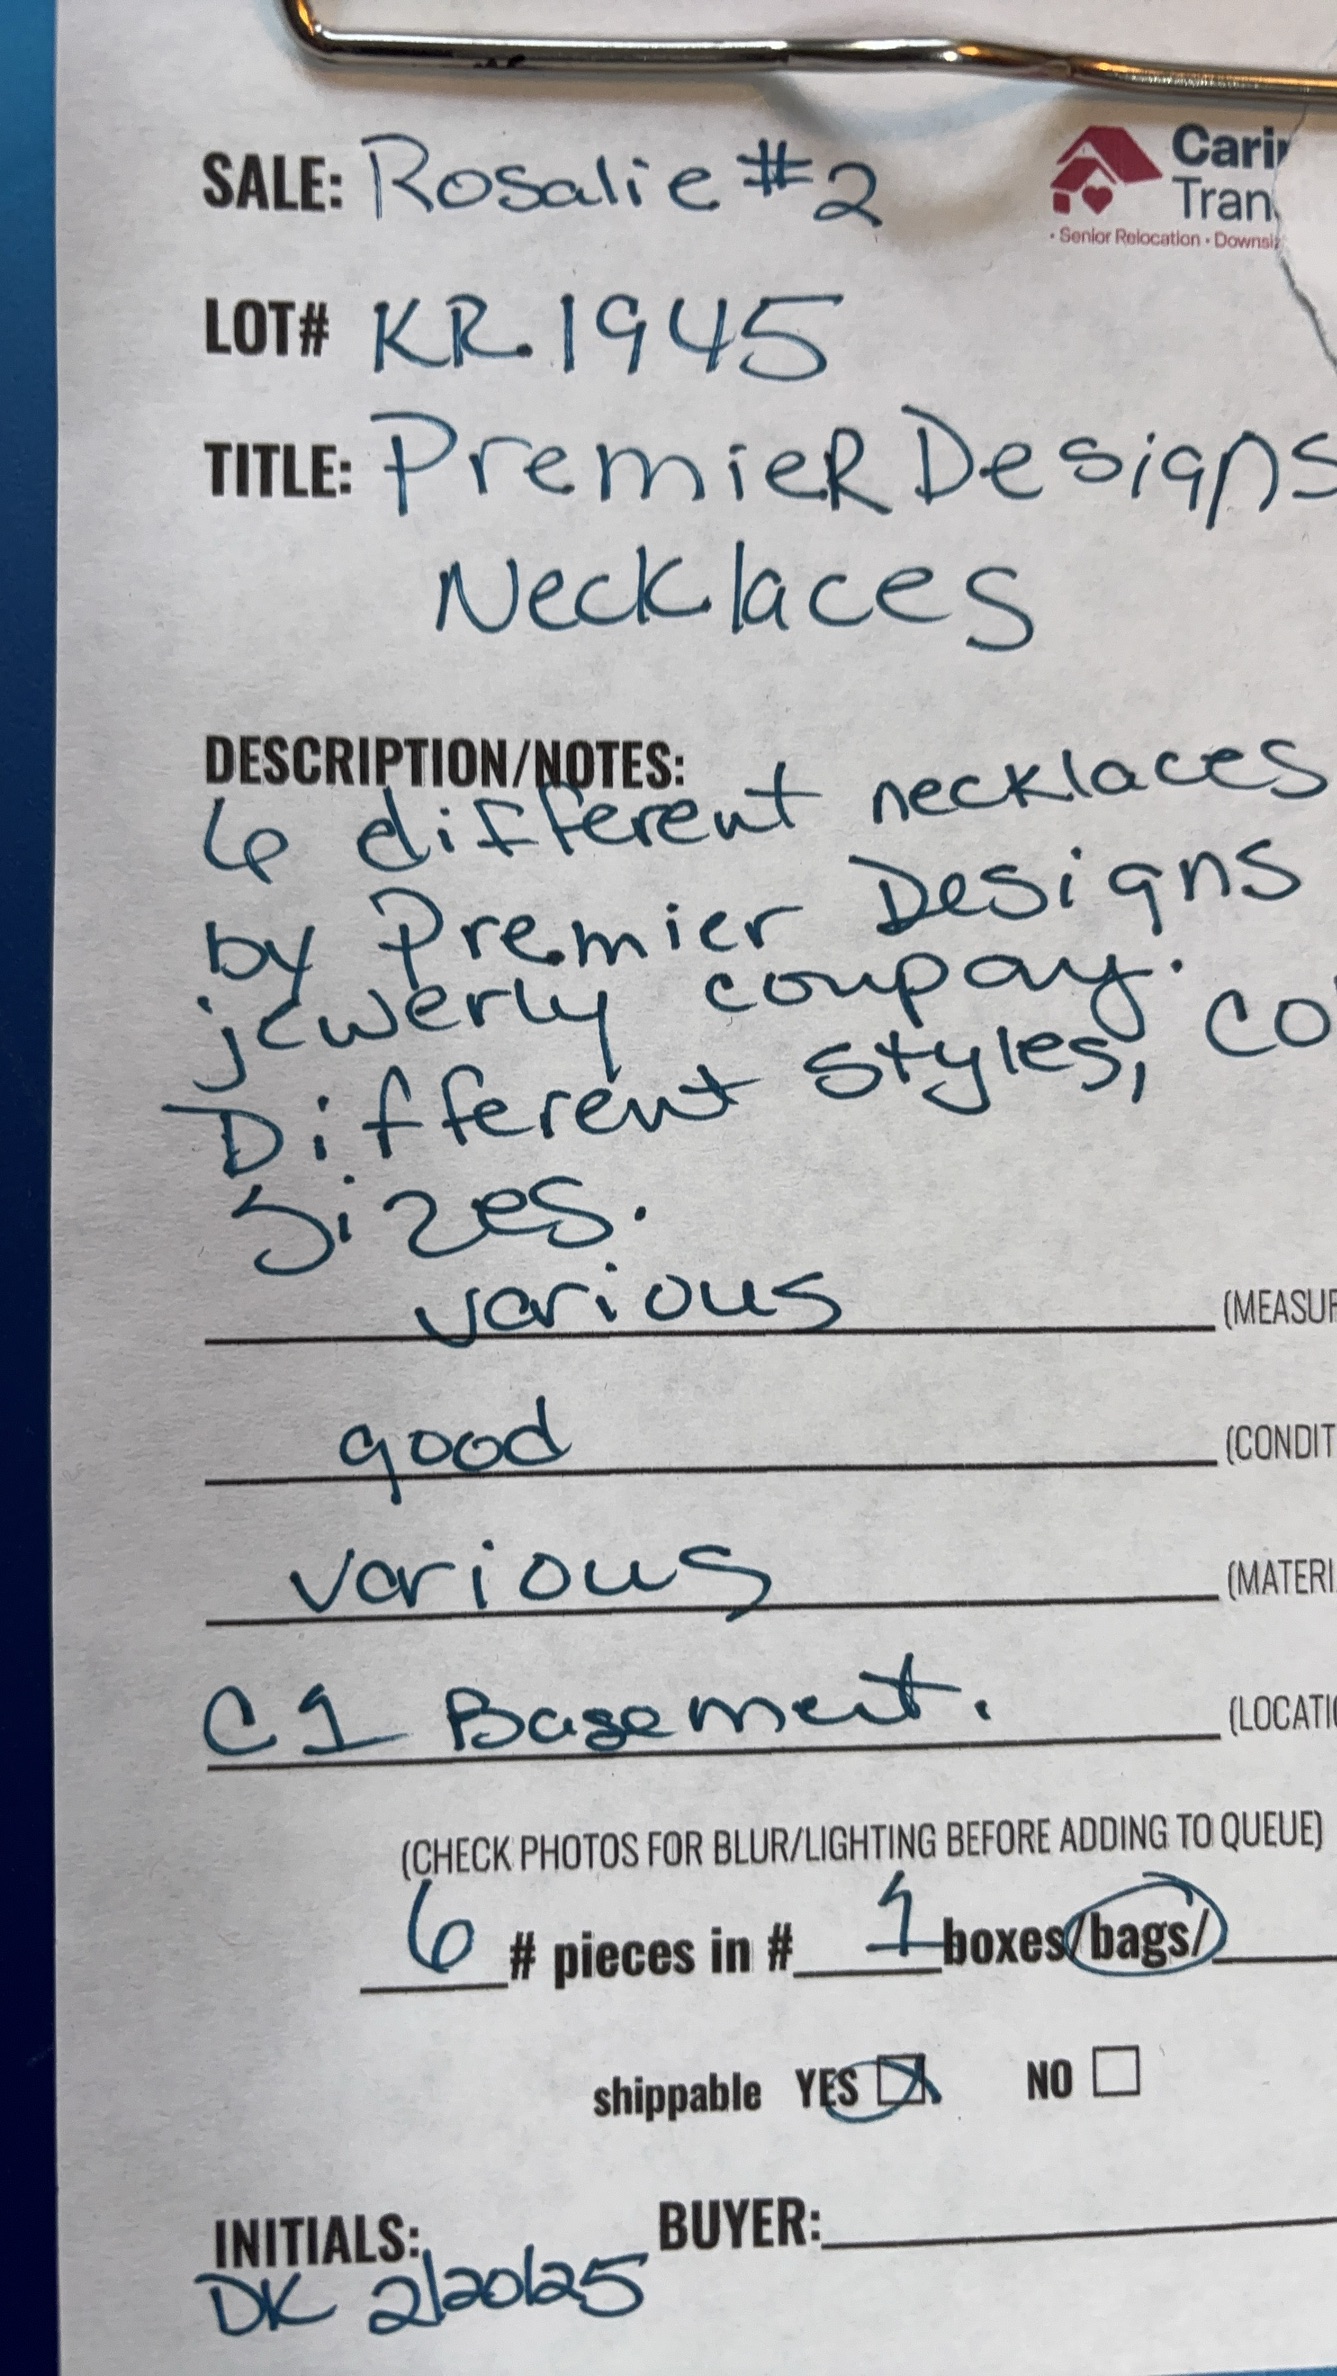 SALE: Rosalie #2
Cari
Tran
• Senior Relocation • Downsiz
LOT# KR.1945
TITLE: Premier Designs
Necklaces
DESCRIPTION/NOTES:
6 different necklaces
by Premier Designs
jewerly compay.
Different styles, co
Sizes.
various (MEASUR
good (CONDIT
various (MATERI
C1 Basement. (LOCATI
(CHECK PHOTOS FOR BLUR/LIGHTING BEFORE ADDING TO QUEUE)
6 # pieces in # 1 boxes/bags/
shippable YES NO
INITIALS: BUYER:
DK 2/20/25